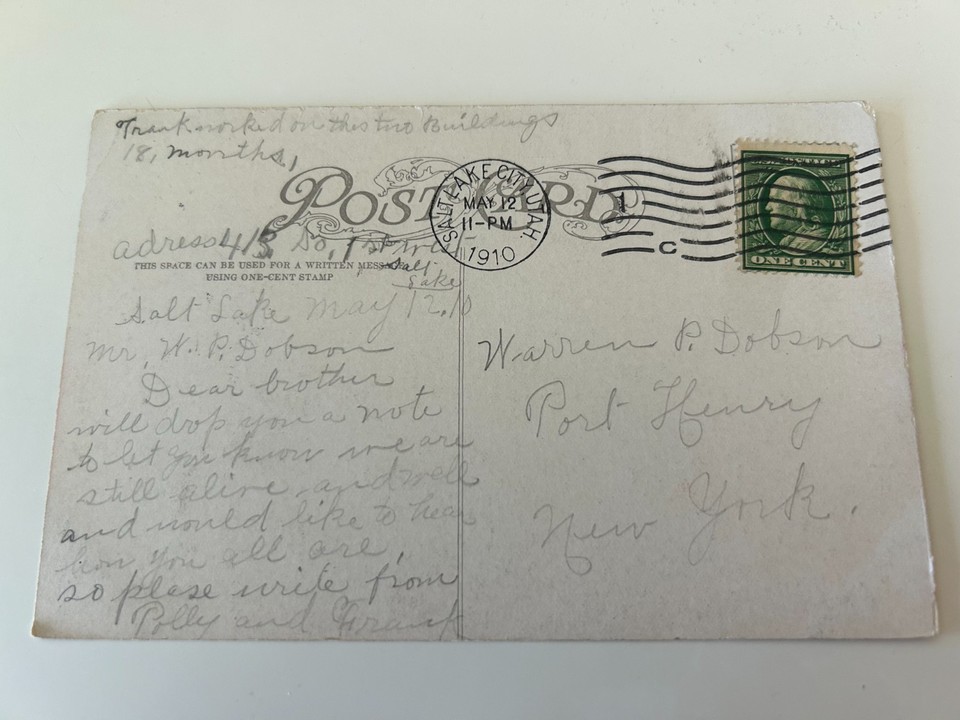 Frank worked on this two Buildings
18, months,
POST CARD
SALT LAKE CITY, UTAH.
MAY 12
11-PM
1910
1
C
ONE CENT
adress 415 So, 1st
Salt
Lake
THIS SPACE CAN BE USED FOR A WRITTEN MESSAGE
USING ONE-CENT STAMP
Salt Lake May 12, 10
Mr, W. P. Dobson
Dear brother
will drop you a note
to let you know we are
still alive and well
and would like to hear
how you all are,
so please write from
Polly and Frank
Warren P. Dobson
Port Henry
New York.